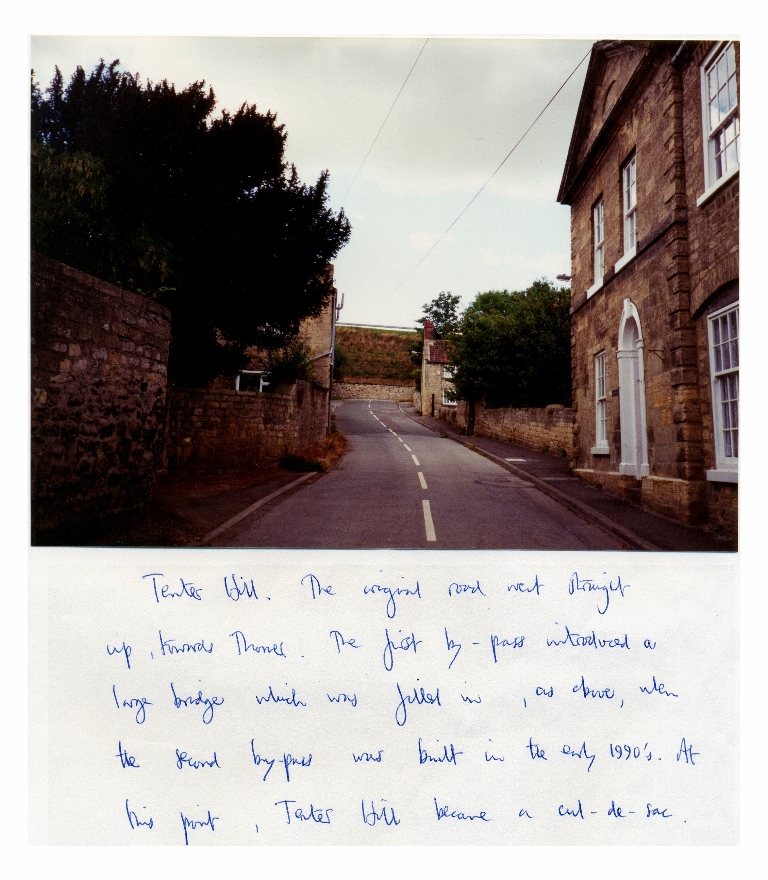 Tenter Hill. The original road went straight
up, towards Thorner. The first by-pass introduced a
large bridge which was filled in, as above, when
the second by-pass was built in the early 1990's. At
this point, Tenter Hill became a cul-de-sac.